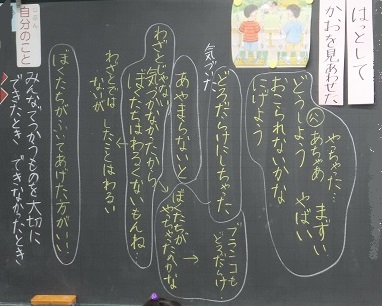 はっとして
かおを見あわせた
やっちゃった… まずい
あちゃあ やばい
どうしよう
おこられないかな
にげよう
ブランコも
どろだらけ…
気づいた
どろだらけにしちゃった
あやまらないと
ぼくたちが
やっちゃったのかな
わざとじゃない
気づかなかったから
ぼくたちはわるくないもんね…
わざとでは
ないが
したことはわるい
ぼくたちがふいてあげた方がいい…
自分のこと
みんなでつかうものを大切に
できたとき できなかったとき